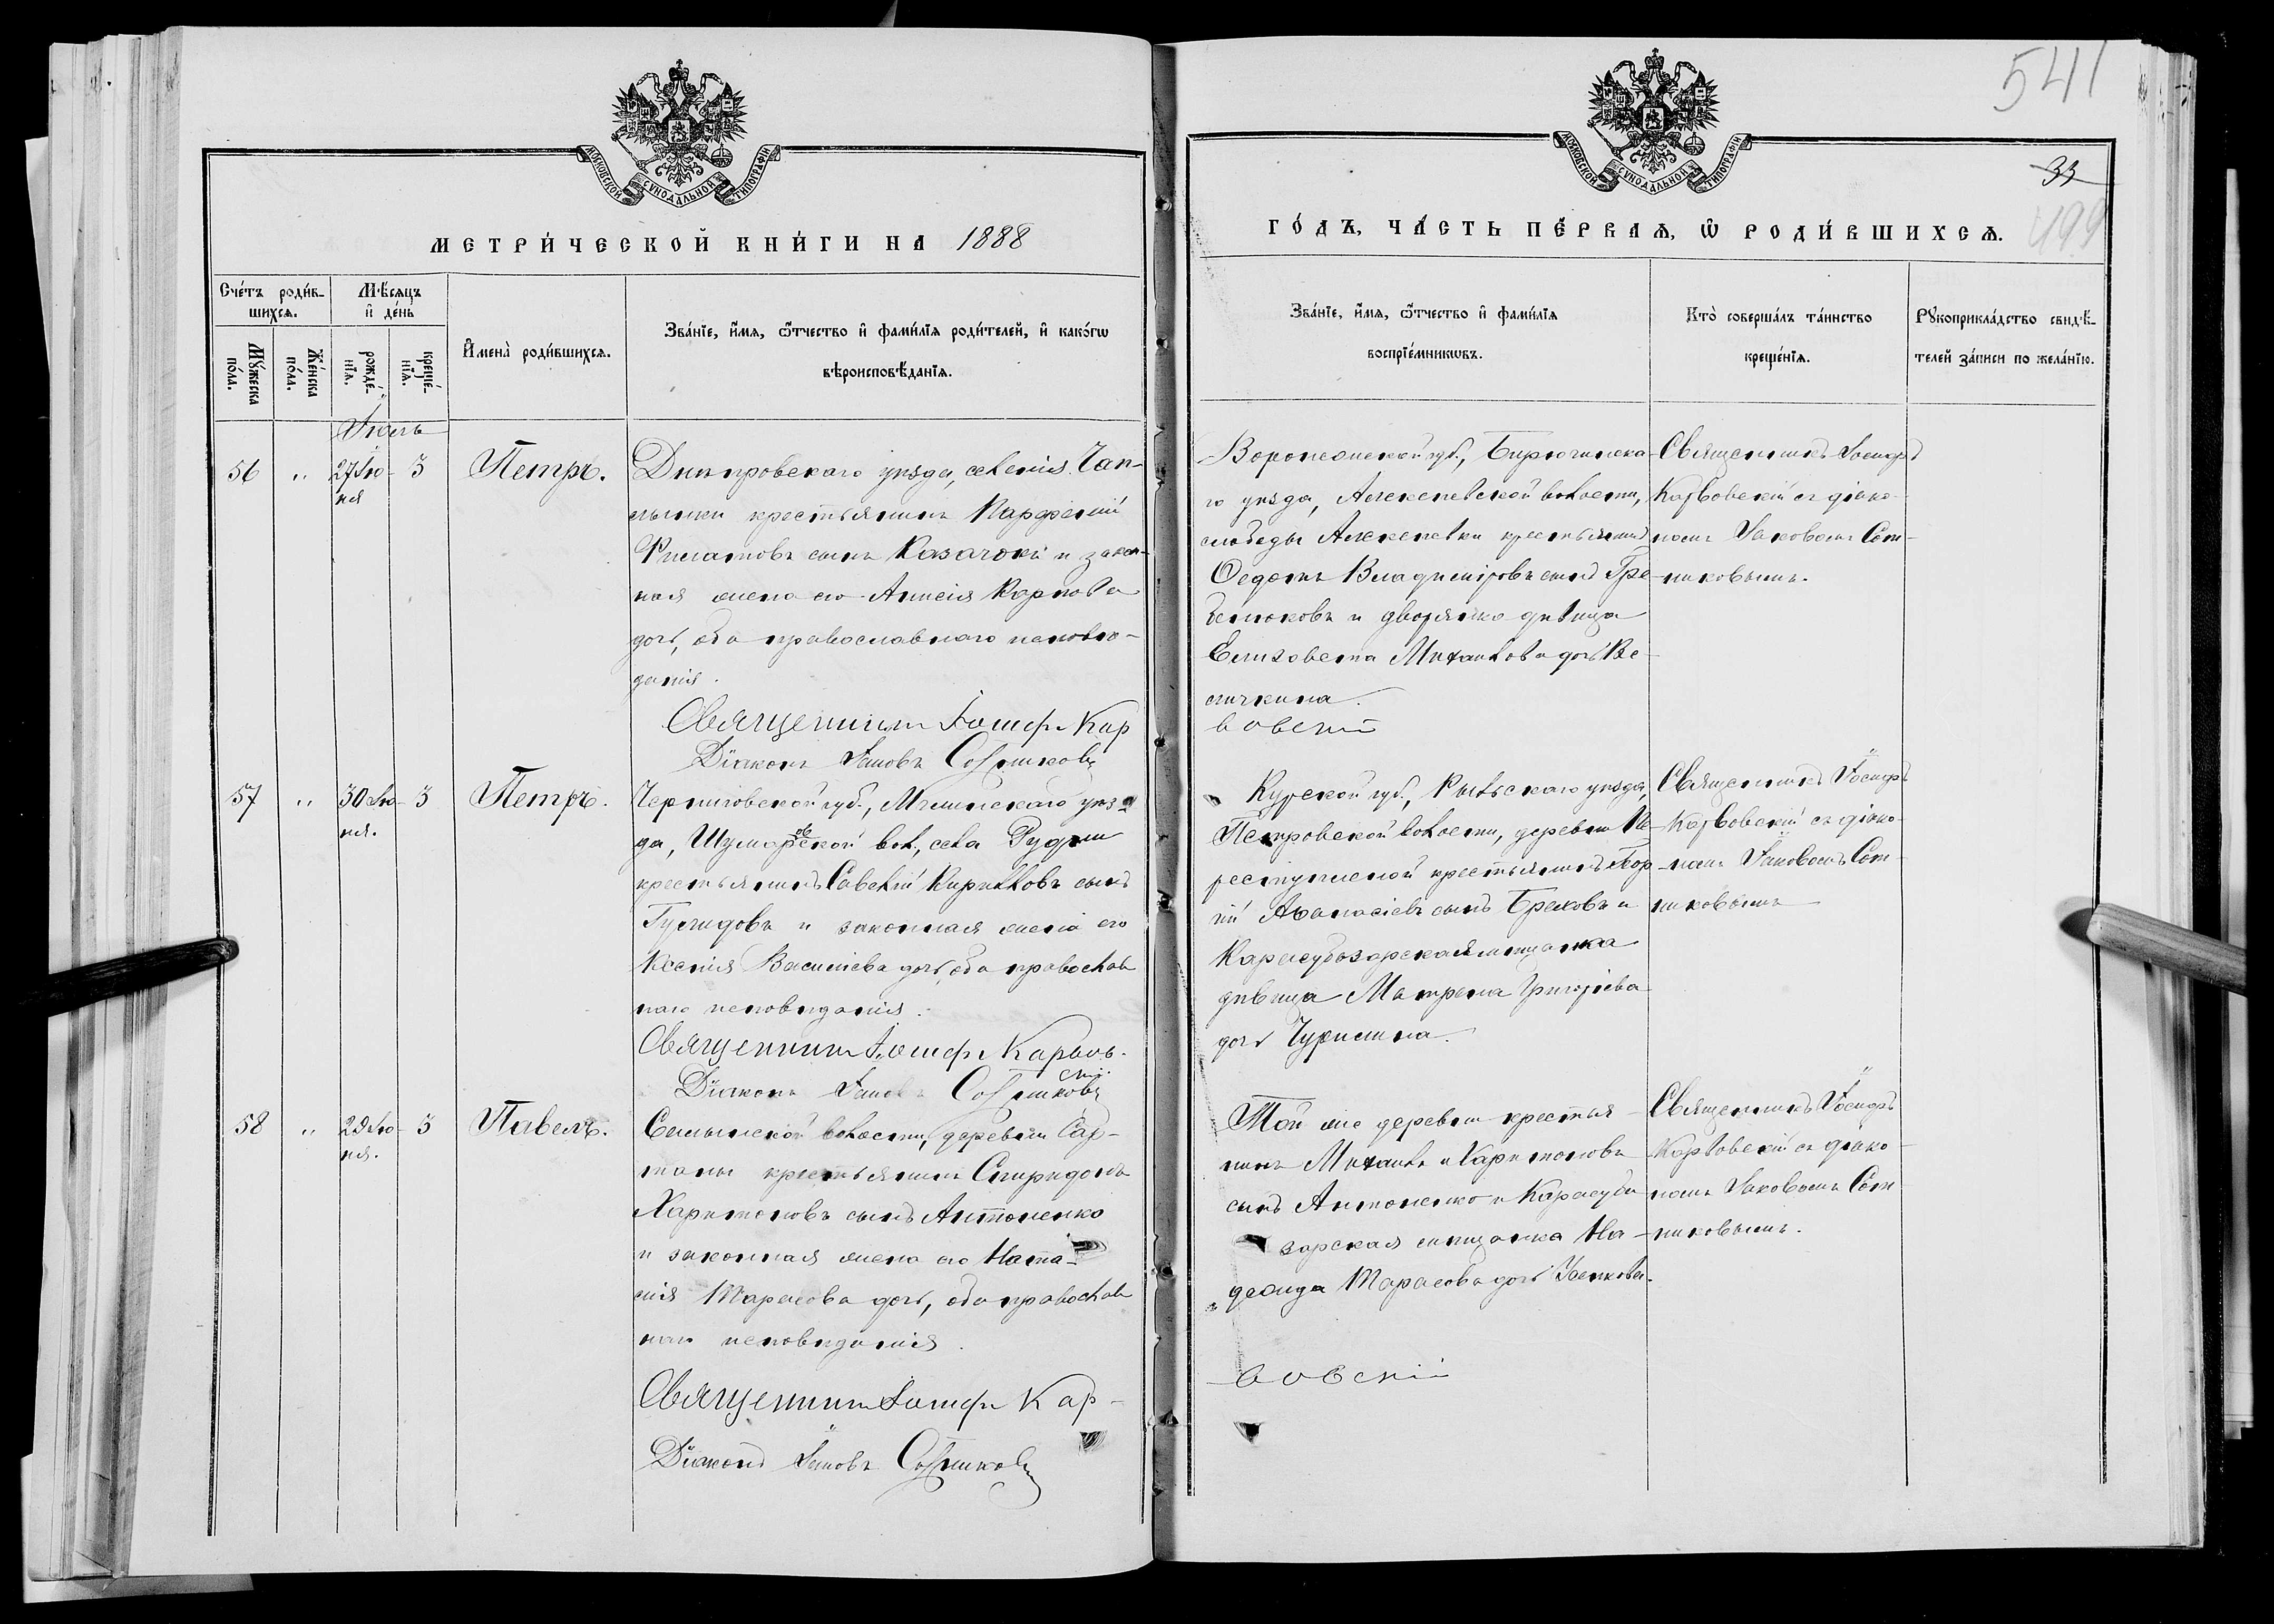 541
33
499
МОСКОВСКОЙ СѴНОДАЛЬНОЙ ТИПОГРАФІИ
МОСКОВСКОЙ СѴНОДАЛЬНОЙ ТИПОГРАФІИ
МЕТРИ́ЧЕСКОЙ КНИ́ГИ НА 1888
ГО́ДЪ, ЧА́СТЬ ПЕ́РВАѦ, Ѽ РОДИ́ВШИХСѦ.
Сче́тъ роди́в-
шихсѧ.
Мѣ́сѧцъ
и҆ де́нь
Мꙋ́жеска
по́ла.
Же́нска
по́ла.
рожде́-
нїѧ.
креще́-
нїѧ.
И҆мена̀ роди́вшихсѧ.
Зва́нїе, и҆́мѧ, ѻ҆́тчество и҆ фами́лїѧ роди́телей, и҆ како́гѡ
вѣроисповѣ́данїѧ.
Зва́нїе, и҆́мѧ, ѻ҆́тчество и҆ фами́лїѧ
воспрїе́мникѡвъ.
Кто̀ соверша́лъ та́инство
креще́нїѧ.
Рꙋкоприкла́дство свидѣ́-
телей за́писи по жела́нїю.
Іюль
56 " 27 Ію- 3 Петръ.
ня
Днѣпровскаго уѣзда, селенія Чап-
лынки крестьянинъ Парфеній
Филатовъ сынъ Казачокъ и закон-
ная жена его Анисія Карпова
дочь, оба православнаго исповѣ-
данія.
Священникъ Іосифъ Кар
Діаконъ Іаковъ Сотниковъ
Воронежской губ., Бирюченска-
го уѣзда, Алексѣевской волости,
слободы Алексѣевки крестьянинъ
Ѳедотъ Владиміровъ сынъ Гре-
бенюковъ и дворянка дѣвица
Елизавета Михайлова дочь Ке-
вовскій
Священникъ Іосифъ
Карвовскій съ діако-
номъ Іаковомъ Сот-
никовымъ.
57 " 30 Ію- 3 Петръ.
ня.
Черниговской губ., Мглинскаго уѣз-
да, Шумаровской вол., села Рудни
крестьянинъ Савелій Кирилловъ сынъ
и законная жена его
Ксенія Васильева дочь, оба православ
наго исповѣданія.
Священникъ Іосифъ Карвов-
скій.
Діаконъ Іаковъ Сотниковъ
Курской губ., Рыльскаго уѣзда,
Петровской волости, деревни Не-
крестьянинъ Геор-
гій Аѳанасіевъ сынъ и
Карасубазарская мѣщанка
дѣвица Матрена Григоріева
дочь
Священникъ Іосифъ
Карвовскій съ діако-
номъ Іаковомъ Сот-
никовымъ
58 " 29 Ію- 3 Павелъ.
ня.
волости, деревни Сар-
таны крестьянинъ Спиридонъ
Харитоновъ сынъ Антоненко
и законная жена его Ната-
лія Тарасова дочь, оба православ
наго исповѣданія.
Священникъ Іосифъ Кар-
Діаконъ Іаковъ Сотниковъ
Той же деревни крестья-
нинъ Михаилъ Харитоновъ
сынъ Антоненко и Карасуба
зарская мѣщанка На-
дежда Тарасова дочь
вовскій
Священникъ Іосифъ
Карвовскій съ діако-
номъ Іаковомъ Сот-
никовымъ.